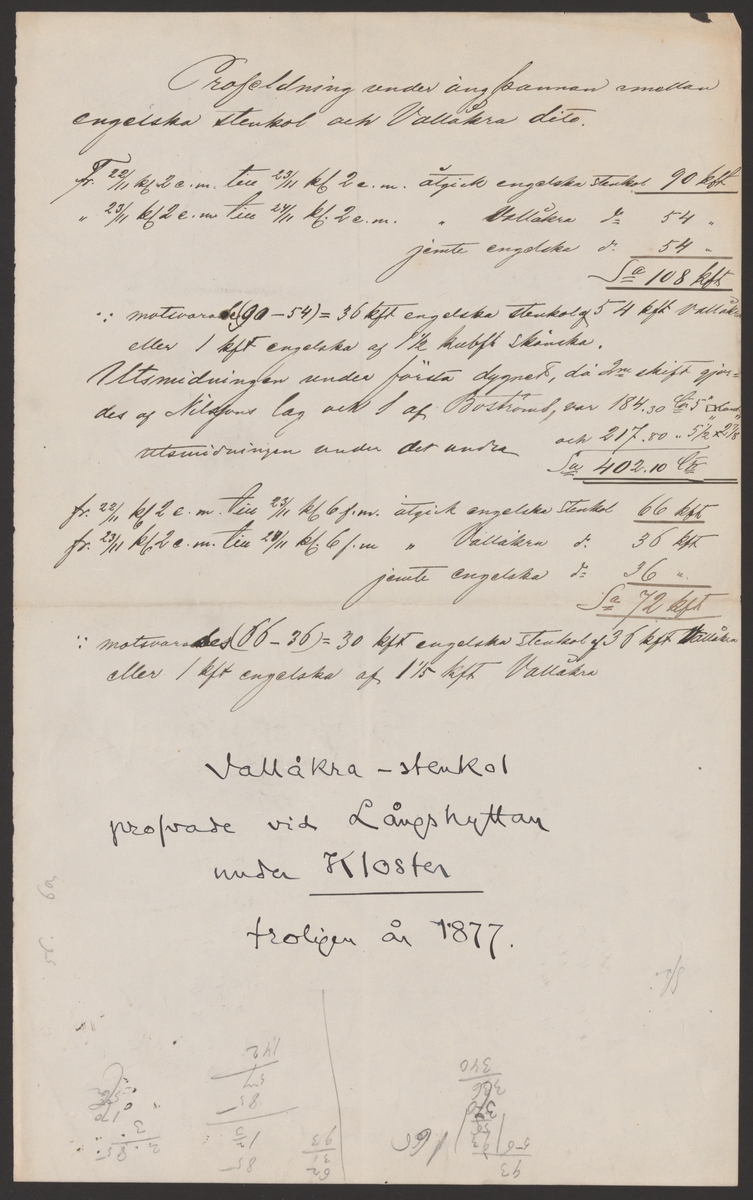 Profeldning under ångpannan emellan
engelska stenkol och Vallåkra dito.
fr. 22/11 kl 2 e.m. till 23/11 kl 2 e.m. åtgick engelska stenkol 90 kft
" 23/11 kl 2 e.m. till 24/11 kl. 2 e.m. " Vallåkra do 54 "
jemte engelska do 54 "
Sa 108 kft
∴ motsvarades (90 – 54) = 36 kft engelska stenkol af 54 kft Vallåkra
eller 1 kft engelska af 1 1/2 kubft skånska.
Utsmidningen under första dygnet, då 2ne skift gjor=
des af Nilssons lag och 1 af Boströms, var 184.30 Ctr 5"
utsmidningen under det andra och 217.80 " 5 1/2 x 2 7/8
Sa 402.10 Ctr
fr. 22/11 kl 2 e.m. till 23/11 kl 6 f.m. åtgick engelska stenkol 66 kft
fr. 23/11 kl 2 e.m. till 24/11 kl. 6 f.m " Vallåkra do 36 kft
jemte engelska do 36 "
Sa 72 kft
∴ motsvarades (66 – 36) = 30 kft engelska stenkol af 36 kft Vallåkra
eller 1 kft engelska af 1 1/5 kft Vallåkra
Vallåkra – stenkol
profvade vid Långshyttan
under Kloster
troligen år 1877.
142
57
85
340
93
62
31
93
85